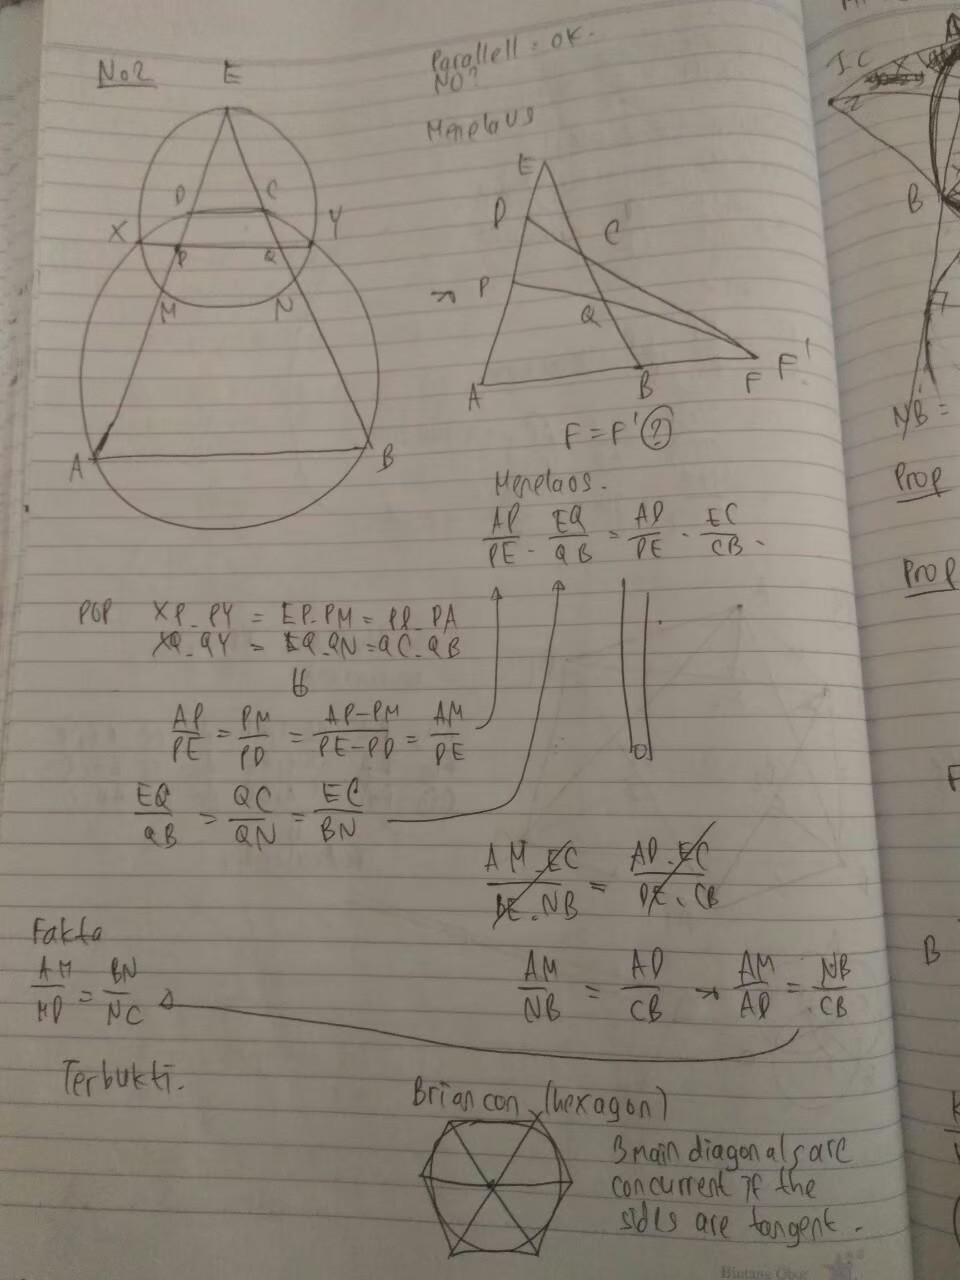 No2
E
D C
X Y
P Q
M N
A B
Parallell = OK.
NO?
Menelaus
E
D
C
P
Q
A B F F'
F = F' ?
Menelaos.
AP/PE . EQ/QB = AD/DE . EC/CB .
POP XP . PY = EP . PM = PD . PA
XQ . QY = EQ . QN = QC . QB
AP/PE = PM/PD = AP-PM/PE-PD = AM/DE
EQ/QB = QC/QN = EC/BN
AM . EC/DE . NB = AD . EC/DE . CB
Fakta
AM/MD = BN/NC
AM/NB = AD/CB → AM/AD = NB/CB
Terbukti.
Briancon (hexagon)
3 main diagonals are
concurrent if the
sides are tangent.
I.C
X
A
Z
B
NB =
Prop
Prop
B